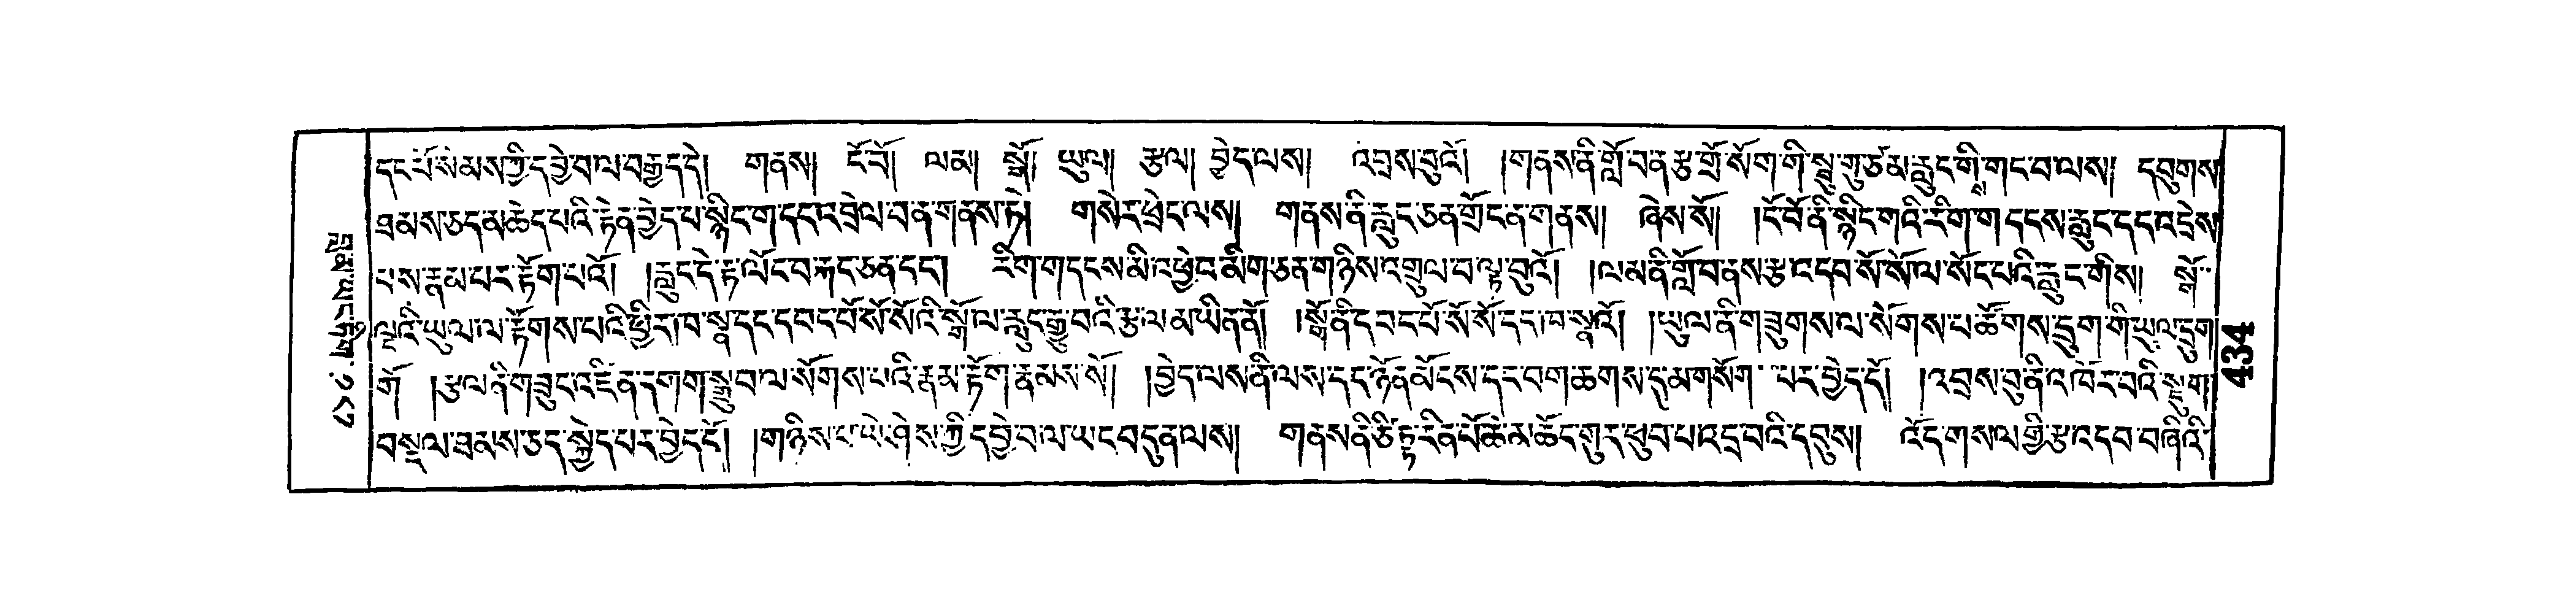 དང་པོ་སེམས་ཀྱི་དབྱེ་བ་ལ་བརྒྱད་དེ། གནས། ངོ་བོ། ལམ། སྒོ། ཡུལ། རྩལ། བྱེད་ལས། འབྲས་བུའོ། །གནས་ནི་གློ་བ་ན་རྩ་གྲོ་སོག་གི་སྦུ་གུ་ཙམ་རླུང་གི་གང་བ་ལས། དབུགས་
ཐམས་ཅད་མཆེད་པའི་རྟེན་བྱེད་པ་སྙིང་ག་དང་འབྲེལ་བ་ན་གནས་ཏེ། གསེར་ཕྲེང་ལས། གནས་ནི་རླུང་ཅན་གྲོང་ན་གནས། ཞེས་སོ། །ངོ་བོ་ནི་སྙིང་གའི་རིག་གདངས་རླུང་དང་འདྲེས་
པས་རྣམ་པར་རྟོག་པའོ། །རླུང་དེ་རྟ་ལོང་བ་རྐང་ཅན་དང། རིག་གདངས་མི་འཕྱེ་བ་མིག་ཅན་གཉིས་འགྲུལ་བ་ལྟ་བུའོ། །ལམ་ནི་གློ་བ་ནས་རྩ་འདབ་སོ་སོ་ལ་སོང་པའི་རླུང་གིས། སྒོ་
ལྔའི་ཡུལ་ལ་རྟོགས་པའི་ཕྱིར། ཁ་སྣ་དང་དབང་པོ་སོ་སོའི་སྒོ་ལ་རླུང་རྒྱུ་བའི་རྩ་ལམ་ཡིན་ནོ། །སྒོ་ནི་དབང་པོ་སོ་སོ་དང་། ཁ་སྣའོ། །ཡུལ་ནི་གཟུགས་ལ་སོགས་པ་ཚོགས་དྲུག་གི་ཡུལ་དྲུག་
གོ །རྩལ་ནི་གཟུང་འཛིན་དགག་སྒྲུབ་ལ་སོགས་པའི་རྣམ་རྟོག་རྣམས་སོ། །བྱེད་ལས་ནི་ལས་དང་ཉོན་མོངས་དང་བག་ཆགས་དུ་མ་གསོག་པར་བྱེད་དོ། །འབྲས་བུ་ནི་འཁོར་བའི་སྡུག་
བསྔལ་ཐམས་ཅད་སྐྱེད་པར་བྱེད་དོ། །གཉིས་པ་ཡེ་ཤེས་ཀྱི་དབྱེ་བ་ལ་ཡང་བདུན་ལས། གནས་ནི་ཙིཏྟ་རིན་པོ་ཆེ་མ་ཆོང་གུར་ཕུབ་པ་འདྲ་བའི་དབུས། འོད་གསལ་གྱི་རྩ་འདབ་བཞིའི་